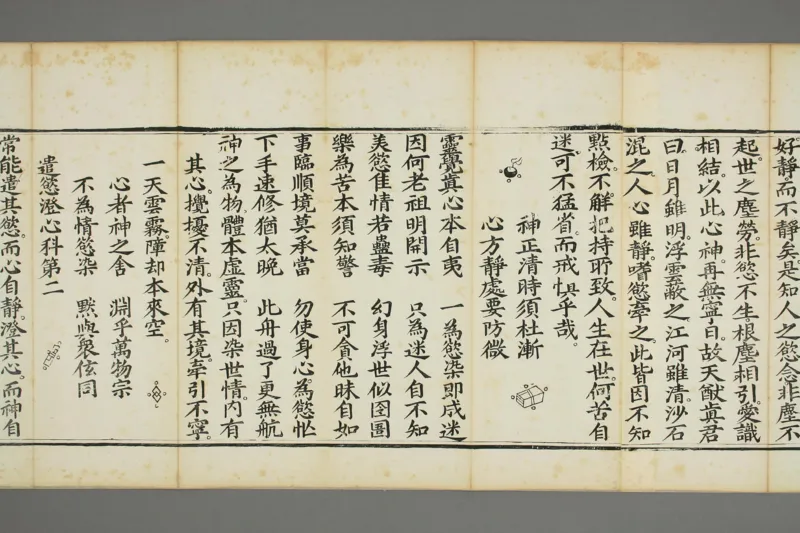 好靜而不靜矣。是知人之慾念。非塵不
起。世之塵勞。非慾不生。根塵相引。愛識
相結。以此心神。再無寧日。故天猷眞君
曰。日月雖明。浮雲蔽之。江河雖清。沙石
混之。人心雖靜。嗜慾牽之。此皆因不知
㸃檢。不觧把持所致。人生在世。何苦自
迷。可不猛省。而戒惧乎哉。
神正清時須杜漸
心方靜處要防微
靈覺眞心本自夷 一為慾染即成迷
因何老祖明開示 只為迷人自不知
美慾隹情若蠱毒 幻身浮世似囹圄
樂為苦本須知警 不可貪他昧自如
事臨順境莫承當 勿使身心為慾忙
下手速修猶太晚 此舟過了更無航
神之為物。體本虛靈。只因染世情。内有
其心。攪擾不清。外有其境。牽引不寧。
一天雲霧。障却本來空。
心者神之舍 淵乎萬物宗
不為情慾染 黙與衮佉同
遣慾澄心科第二
常能遣其慾。而心自靜。澄其心。而神自